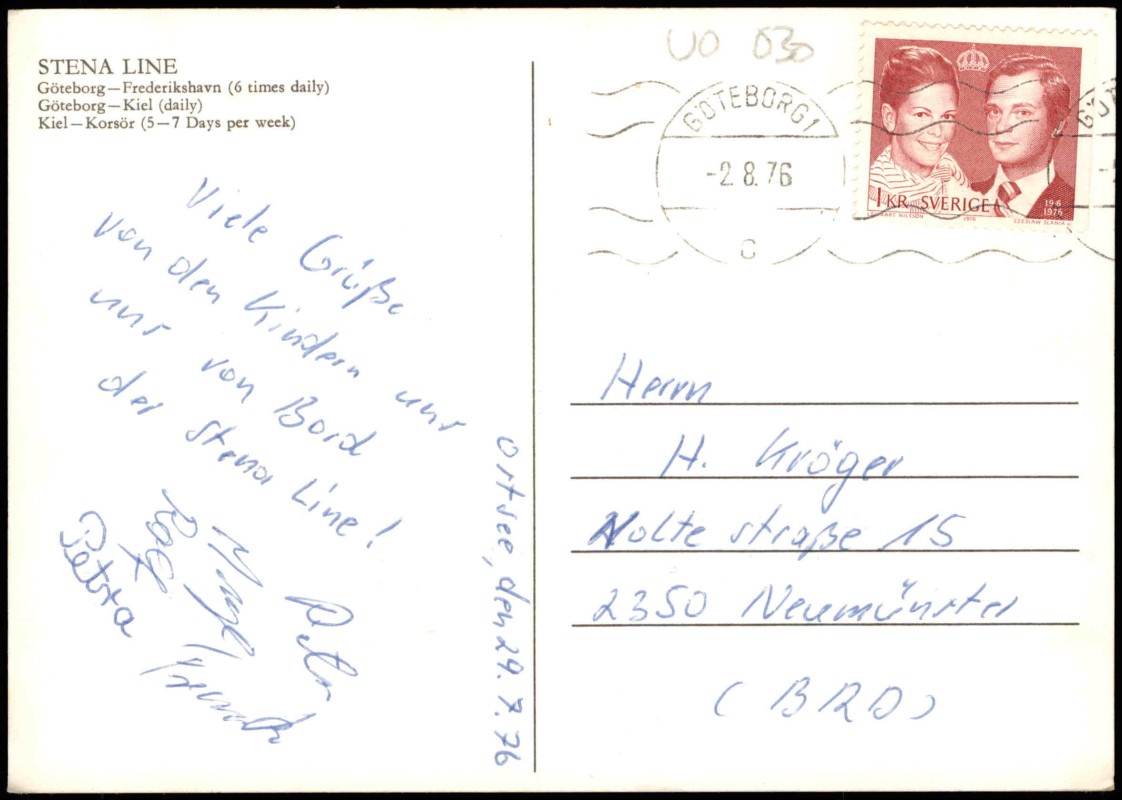 STENA LINE
Göteborg—Frederikshavn (6 times daily)
Göteborg—Kiel (daily)
Kiel—Korsör (5—7 Days per week)
Viele Grüße
von den Kindern und
und von Bord
der Stena Line!
Rolf
Petra
Peter
Ostsee, den 29.7.76
UO 030
GÖTEBORG 1
-2.8.76
C
1 KR SVERIGE
19·6
1976
LENNART NILSSON 1976 CZESLAW SLANIA
Herrn
H. Kröger
Nolte straße 15
2350 Neumünster
(BRD)